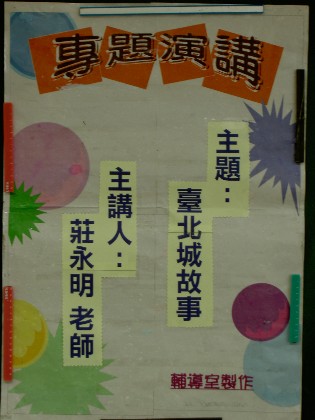 專題演講
主題：
臺北城故事
主講人：
莊永明 老師
輔導室製作